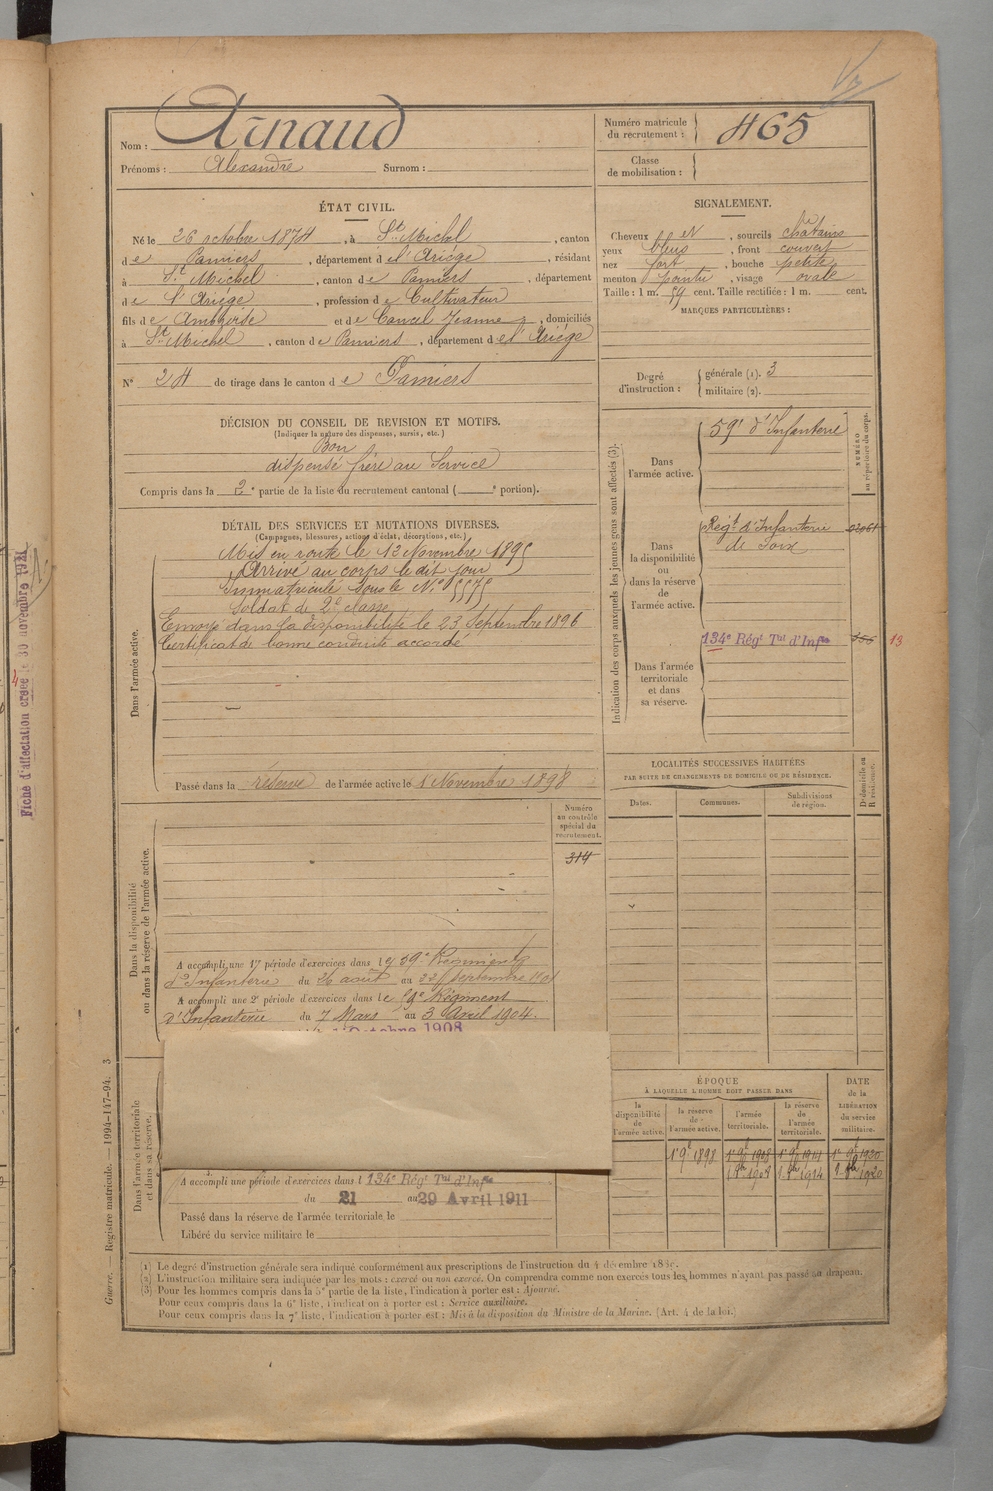 Nom : Arnaud
Prénoms : Alexandre Surnom :
Numéro matricule du recrutement : 465
Classe de mobilisation :
ÉTAT CIVIL.
Né le 26 octobre 1874, à St Michel, canton
de Pamiers, département de l'Ariège, résidant
à St Michel, canton de Pamiers, département
de l'Ariège, profession de Cultivateur
fils de Ambroise et de Cancel Jeanne, domiciliés
à St Michel, canton de Pamiers, département de l'Ariège
N° 24 de tirage dans le canton de Pamiers
SIGNALEMENT.
Cheveux et, sourcils châtains
yeux bleus, front couvert
nez fort, bouche petite
menton pointu, visage ovale
Taille : 1 m. 59 cent. Taille rectifiée : 1 m. cent.
MARQUES PARTICULIÈRES :
Degré d'instruction : générale (1). 3
militaire (2).
DÉCISION DU CONSEIL DE REVISION ET MOTIFS.
(Indiquer la nature des dispenses, sursis, etc.)
Bon
dispensé frère au Service
Compris dans la 2e partie de la liste du recrutement cantonal ( e portion).
DÉTAIL DES SERVICES ET MUTATIONS DIVERSES.
(Campagnes, blessures, actions d'éclat, décorations, etc.)
Dans l'armée active.
Mis en route le 12 Novembre 1895
Arrivé au corps le dit jour
Immatriculé sous le N° 5575
Soldat de 2e classe
Envoyé dans la disponibilité le 23 Septembre 1896
Certificat de bonne conduite accordé
Passé dans la réserve de l'armée active le 1 Novembre 1898
Indication des corps auxquels les jeunes gens sont affectés (3).
NUMÉRO au répertoire du corps.
Dans l'armée active.
59e d'Infanterie
Dans la disponibilité ou dans la réserve de l'armée active.
Régt d'Infanterie
de Foix
Dans l'armée territoriale et dans sa réserve.
134e Régt Tal d'Infie
13
LOCALITÉS SUCCESSIVES HABITÉES
PAR SUITE DE CHANGEMENTS DE DOMICILE OU DE RÉSIDENCE.
Dates.
Communes.
Subdivisions de région.
D domicile ou R résidence.
Numéro au contrôle spécial du recrutement.
314
Dans la disponibilité ou dans la réserve de l'armée active.
A accompli une 1re période d'exercices dans le 59e Régiment
d'Infanterie du 26 août au 22 septembre 1901
A accompli une 2e période d'exercices dans le Régiment
d'Infanterie du 7 Mars au 3 Avril 1904.
Octobre 1908
Dans l'armée territoriale et dans sa réserve.
A accompli une période d'exercices dans l 134e Régt Tal d'Infie
du 21 au 29 Avril 1911
Passé dans la réserve de l'armée territoriale le
Libéré du service militaire le
ÉPOQUE
À LAQUELLE L'HOMME DOIT PASSER DANS
la disponibilité de l'armée active.
la réserve de l'armée active.
l'armée territoriale.
la réserve de l'armée territoriale.
DATE de la LIBÉRATION du service militaire.
1r 9bre 1898 1r 9bre 1908 1r 9bre 1914 1r 9bre 1920
(1) Le degré d'instruction générale sera indiqué conformément aux prescriptions de l'instruction du 4 décembre 1889.
(2) L'instruction militaire sera indiquée par les mots : exercé ou non exercé. On comprendra comme non exercés tous les hommes n'ayant pas passé au drapeau.
(3) Pour les hommes compris dans la 5e partie de la liste, l'indication à porter est : Ajourné.
Pour ceux compris dans la 6e liste, l'indication à porter est : Service auxiliaire.
Pour ceux compris dans la 7e liste, l'indication à porter est : Mis à la disposition du Ministre de la Marine. (Art. 4 de la loi.)
Guerre. — Registre matricule. — 1994-147-94. 3
Fiche d'affectation créée le 30 novembre 1921